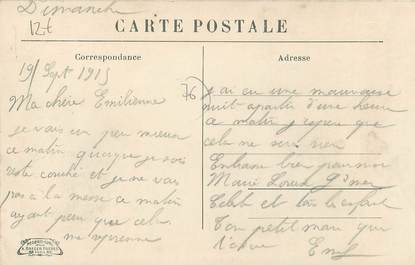 Dimanche
12t
CARTE POSTALE
Correspondance
Adresse
19 Sept 1915
Ma chère Emilienne
je vais un peu mieux
ce matin quoique je sois
resté couché et je ne vais
pas à la messe ce matin
ayant peur que cela
me reprenne
76
j'ai eu une mauvaise
nuit apartir d'une heure
ce matin j'espère que
cela ne sera rien
Embrasse bien pour moi
Marie
et tous les enfants
Ton petit mari qui
t'aime Emile